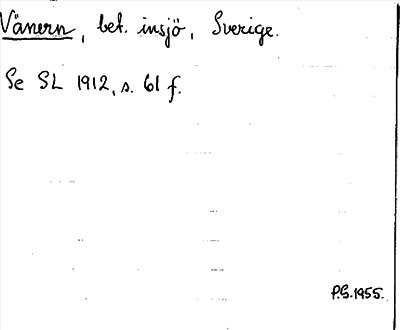 Vänern, bet. insjö, Sverige.
Se SL 1912, s. 61 f.
P.G. 1955.